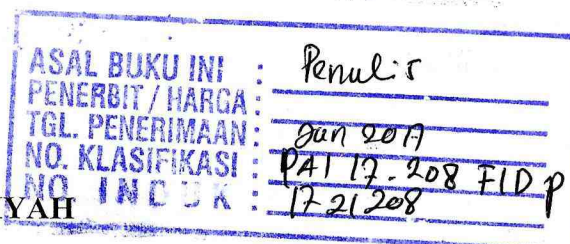 ASAL BUKU INI : Penulis
PENERBIT / HARGA :
TGL. PENERIMAAN : Jun 2017
NO. KLASIFIKASI : PAI 17.208 FID p
NO. INDUK : 1721208
YAH